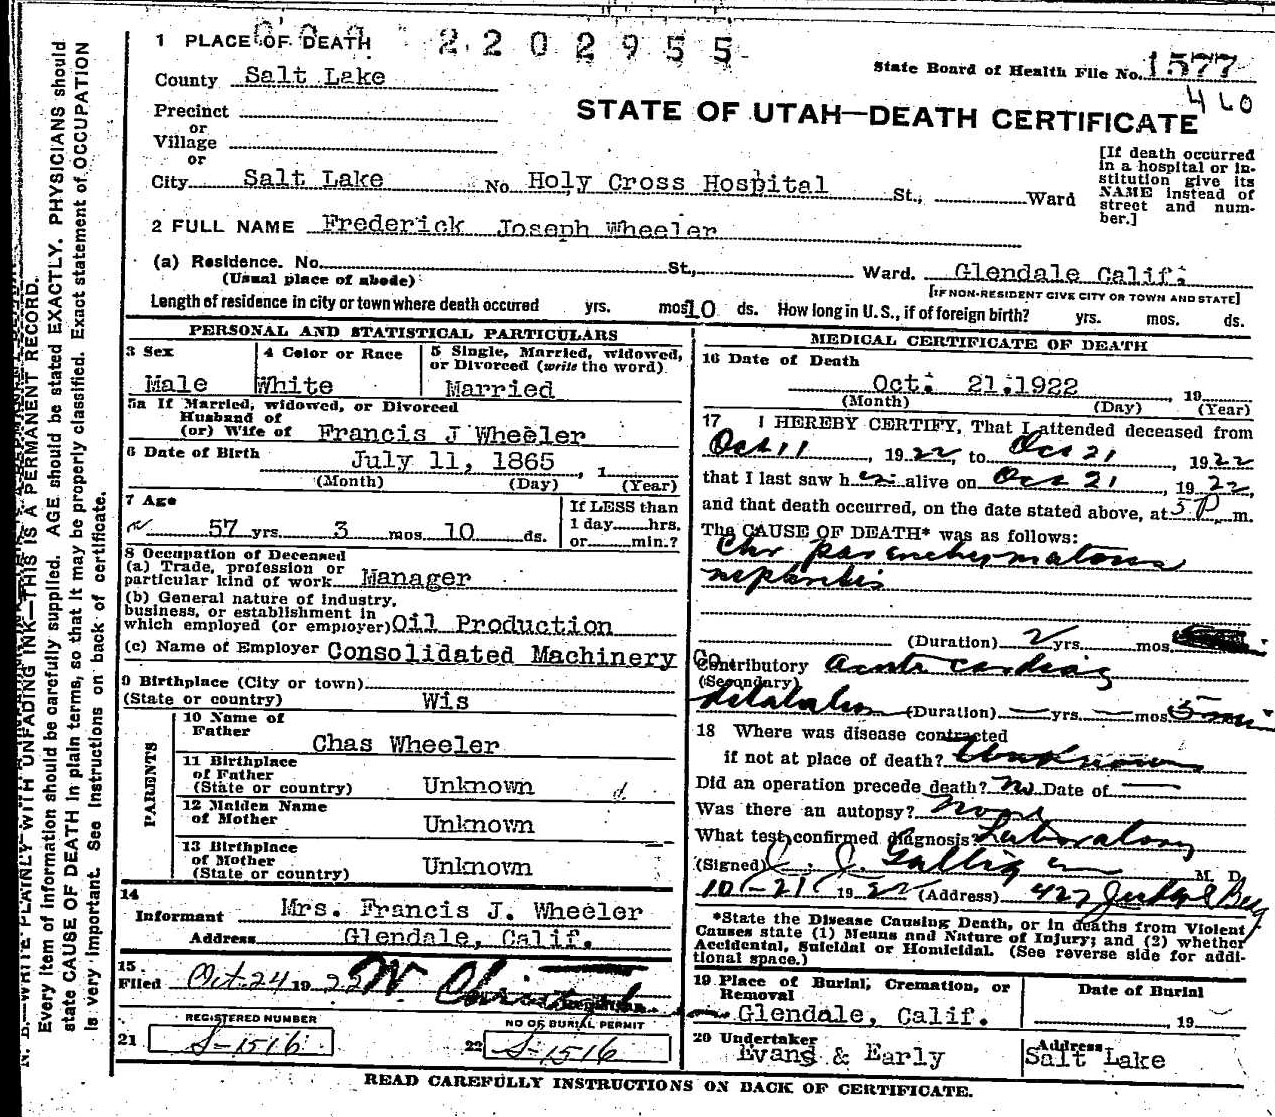 1 PLACE OF DEATH 2202955
State Board of Health File No. 1577
460
County Salt Lake
STATE OF UTAH—DEATH CERTIFICATE
Precinct
or
Village
or
City Salt Lake No. Holy Cross Hospital St., Ward
[If death occurred
in a hospital or in-
stitution give its
NAME instead of
street and num-
ber.]
2 FULL NAME Frederick Joseph Wheeler
(a) Residence. No. St., Ward. Glendale Calif.
(Usual place of abode) [IF NON-RESIDENT GIVE CITY OR TOWN AND STATE]
Length of residence in city or town where death occured yrs. mos 10 ds. How long in U.S., if of foreign birth? yrs. mos. ds.
PERSONAL AND STATISTICAL PARTICULARS
3 Sex 4 Color or Race 5 Single, Married, widowed,
or Divorced (write the word)
Male White Married
5a If Married, widowed, or Divorced
Husband of
(or) Wife of Francis J Wheeler
6 Date of Birth July 11, 1865 , 1
(Month) (Day) (Year)
7 Age If LESS than
57 yrs. 3 mos. 10 ds. 1 day hrs.
or min.?
8 Occupation of Deceased
(a) Trade, profession or
particular kind of work Manager
(b) General nature of Industry,
business, or establishment in
which employed (or employer) Oil Production
(c) Name of Employer Consolidated Machinery Co
9 Birthplace (City or town)
(State or country) Wis
PARENTS
10 Name of
Father Chas Wheeler
11 Birthplace
of Father
(State or country) Unknown
12 Maiden Name
of Mother Unknown
13 Birthplace
of Mother
(State or country) Unknown
14
Informant Mrs. Francis J. Wheeler
Address Glendale, Calif.
15
Filed Oct. 24 1922
REGISTERED NUMBER NO OF BURIAL PERMIT
21 S-1516 22 S-1516
MEDICAL CERTIFICATE OF DEATH
16 Date of Death
Oct. 21. 1922 , 19
(Month) (Day) (Year)
17 I HEREBY CERTIFY, That I attended deceased from
Oct 11 , 1922, to Oct 21 , 1922
that I last saw him alive on Oct 21 , 1922,
and that death occurred, on the date stated above, at 5 P. m.
The CAUSE OF DEATH* was as follows:
Chr parenchymatous
nephritis
(Duration) 2 yrs. mos.
Contributory Acute cardiac
(Secondary)
dilatation (Duration) — yrs. — mos. 5 min
18 Where was disease contracted
if not at place of death? Unknown
Did an operation precede death? No Date of —
Was there an autopsy? None
What test confirmed diagnosis Laboratory
(Signed) J. J. Galligan M. D.
10-21 1922 (Address) 427 Judge Bldg
*State the Disease Causing Death, or in deaths from Violent
Causes state (1) Means and Nature of Injury; and (2) whether
Accidental, Suicidal or Homicidal. (See reverse side for addi-
tional space.)
19 Place of Burial, Cremation, or
Removal Date of Burial
Glendale, Calif. , 19
20 Undertaker Address
Evans & Early Salt Lake
READ CAREFULLY INSTRUCTIONS ON BACK OF CERTIFICATE.
N. B.—WRITE PLAINLY WITH UNFADING INK—THIS IS A PERMANENT RECORD.
Every item of information should be carefully supplied. AGE should be stated EXACTLY. PHYSICIANS should
state CAUSE OF DEATH in plain terms, so that it may be properly classified. Exact statement of OCCUPATION
is very important. See instructions on back of certificate.